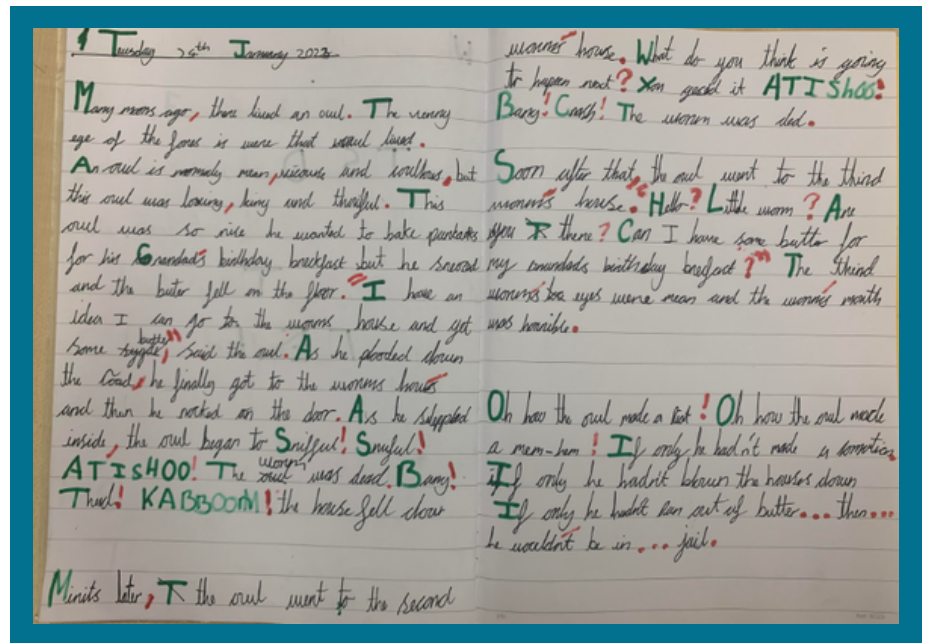 Tuesday 24th January 2023
Many moons ago, there lived an owl. The veriey
ege of the fores is were that wowl lived.
An owl is normaly mean, and but
this owl was loving, king and thorful. This
owl was so nise he wanted to bake pancakes
for his Grandad's birthday breckfast but he sneezed
and the buter fell on the floor. "I have an
idea I can go to the worms house and get
some butter", said the owl. As he plodded down
the road, he finally got to the worms hows
and then he nocked on the door. As he steppled
inside, the owl began to Snifful! Snuful!
ATISHOO! The worm was dead. Bang!
Thud! KABBOOM! the house fell down
Minits later, the owl went to the second
worms house. What do you think is going
to happen next? You it ATISHOO!
Bang! Crash! The worem was ded.
Soon after that, the owl went to the third
worms house. "Hello? Little worm? Are
you there? Can I have some butter for
my grandads birthday brefast?" The third
worms too eyes were mean and the worms mouth
was horrible.
Oh how the owl made a! Oh how the owl made
a mem-hem! If only he hadn't made a
If only he hadn't blown the houses down
If only he hadn't ran out of butter... then...
he wouldn't be in... jail.